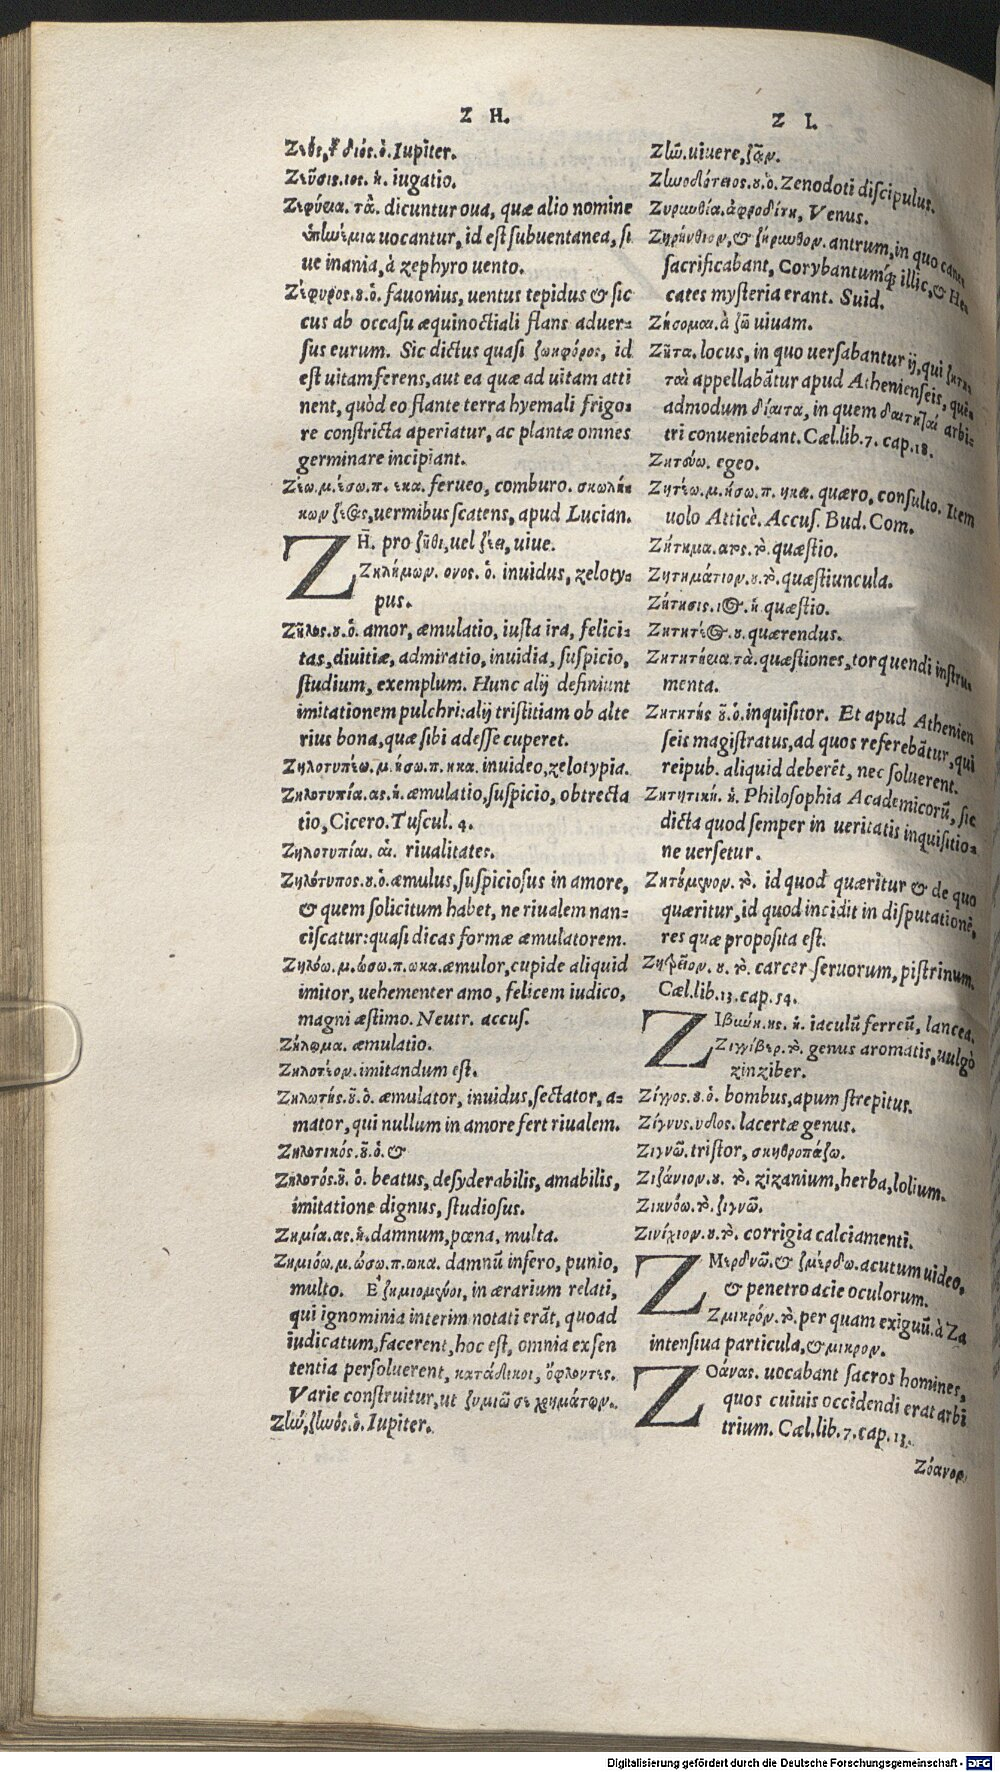 Z H.
Ζεύς, τοῦ διός. ὁ. Iupiter.
Ζεῦσις. ιος. ἡ. iugatio.
Ζεφύεια. τὰ. dicuntur oua, quæ alio nomine
ὑπηνέμια uocantur, id est subuentanea, si
ue inania, à zephyro uento.
Ζέφυρος. ου. ὁ. fauonius, uentus tepidus & sic
cus ab occasu æquinoctiali flans aduer-
sus eurum. Sic dictus quasi ζωηφόρος, id
est uitamferens, aut ea quæ ad uitam atti
nent, quòd eo flante terra hyemali frigo-
re constricta aperiatur, ac plantæ omnes
germinare incipiant.
Ζέω. μ. έσω. π. εκα. ferueo, comburo. σκωλή-
κων ζέσας, uermibus scatens, apud Lucian.
ZῊ. pro ζῆθι, uel ζέε, uiue.
Ζηλήμων. ονος. ὁ. inuidus, zeloty-
pus.
Ζῆλος. ου. ὁ. amor, æmulatio, iusta ira, felici-
tas, diuitiæ, admiratio, inuidia, suspicio,
studium, exemplum. Hunc alij definiunt
imitationem pulchri: alij tristitiam ob alte
rius bona, quæ sibi adesse cuperet.
Ζηλοτυπέω. μ. ήσω. π. ηκα. inuideo, zelotypia.
Ζηλοτυπία. ας. ἡ. æmulatio, suspicio, obtrecta
tio, Cicero. Tuscul. 4.
Ζηλοτυπίαι. αἱ. riualitates.
Ζηλότυπος. ου. ὁ. æmulus, suspiciosus in amore,
& quem solicitum habet, ne riualem nan-
ciscatur: quasi dicas formæ æmulatorem.
Ζηλόω. μ. ώσω. π. ωκα. æmulor, cupide aliquid
imitor, uehementer amo, felicem iudico,
magni æstimo. Neutr. accus.
Ζήλωμα. æmulatio.
Ζηλοτέον. imitandum est.
Ζηλωτής. οῦ. ὁ. æmulator, inuidus, sectator, a-
mator, qui nullum in amore fert riualem.
Ζηλοτικός. οῦ. ὁ. &
Ζηλοτός. οῦ. ὁ. beatus, desyderabilis, amabilis,
imitatione dignus, studiosus.
Ζημία. ας. ἡ. damnum, pœna, multa.
Ζημιόω. μ. ώσω. π. ωκα. damnũ infero, punio,
multo. Ἐζημιομένοι, in ærarium relati,
qui ignominia interim notati erãt, quoad
iudicatum, facerent, hoc est, omnia ex sen
tentia persoluerent, κατάδικοι, ὄφλοντες.
Varie construitur, ut ζυμιῶ σε χρημάτων.
Ζὴν, ζηνός. ὁ. Iupiter.
Z I.
Ζῆν. uiuere, ζᾶν.
Ζηνοδότειος. ου. ὁ. Zenodoti discipulus.
Ζηρηνθία. ἀφροδίτη, Venus.
Ζηρήνθιον, & ζήρυνθον. antrum, in quo canes
sacrificabant, Corybantumq́ illic, & He
cates mysteria erant. Suid.
Ζήσομαι. à ζῶ uiuam.
Ζῆτα. locus, in quo uersabantur ij, qui ζητη
ταὶ appellabãtur apud Athenienseis, que-
admodum δίαιτα, in quem διαιτηταὶ arbi-
tri conueniebant. Cæl. lib. 7. cap. 18.
Ζητεύω. egeo.
Ζητέω. μ. ήσω. π. ηκα. quæro, consulto. Item
uolo Atticè. Accus. Bud. Com.
Ζήτημα. ατος. τὸ. quæstio.
Ζητημάτιον. ου. τὸ. quæstiuncula.
Ζήτησις. ιος. ἡ quæstio.
Ζητητέος. ου. quærendus.
Ζητητήεια. τὰ. quæstiones, torquendi instru-
menta.
Ζητητής οῦ. ὁ. inquisitor. Et apud Athenien
seis magistratus, ad quos referebãtur, qui
reipub. aliquid deberẽt, nec soluerent.
Ζητητική. ἡ. Philosophia Academicorũ, sic
dicta quod semper in ueritatis inquisitio-
ne uersetur.
Ζητούμενον. τὸ. id quod quæritur & de quo
quæritur, id quod incidit in disputationẽ,
res quæ proposita est.
Ζητρεῖον. ου. τὸ. carcer seruorum, pistrinum.
Cæl. lib. 13. cap. 54.
ZΙβύνη. ης. ἡ. iaculũ ferreũ, lancea.
Ζιγγίβερ. τὸ. genus aromatis, uulgò
zinziber.
Ζίγγος. ου. ὁ. bombus, apum strepitus.
Ζίγνυς. υδος. lacertæ genus.
Ζιγνῶ. tristor, σκηθροπάζω.
Ζιζάνιον. ου. τὸ. zizanium, herba, lolium.
Ζικνόω. τὸ. ζιγνῶ.
Ζινίχιον. ου. τὸ. corrigia calciamenti.
ZΜερδνῶ. & ζμέρδω. acutum uideo,
& penetro acie oculorum.
Ζμικρόν. τὸ. per quam exiguũ. à Ζα
intensiua particula, & μικρον.
ZΟάνας. uocabant sacros homines,
quos cuiuis occidendi erat arbi
trium. Cæl. lib. 7. cap. 13.
Ζόανον
Digitalisierung gefördert durch die Deutsche Forschungsgemeinschaft - DFG